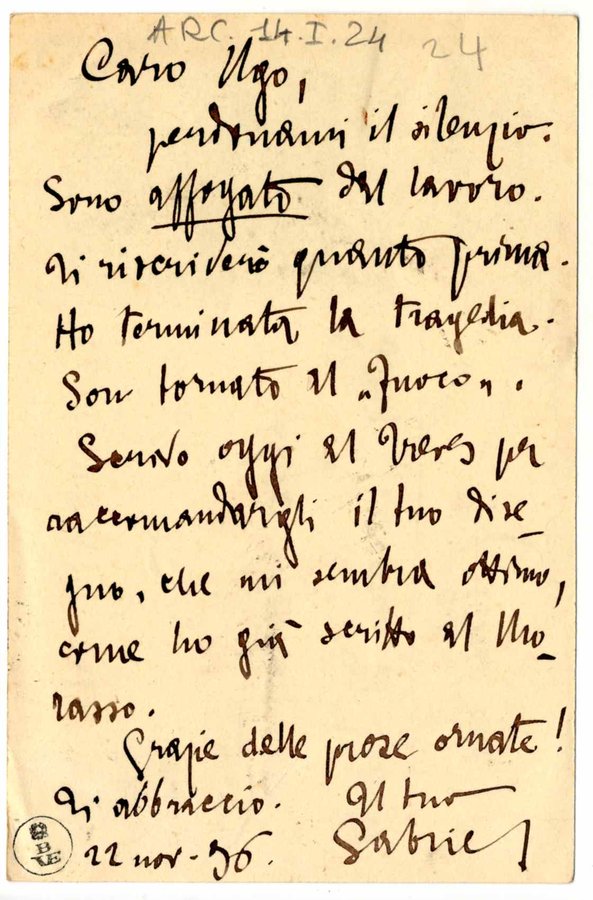 ARC. 14. I. 24
24
Caro Ugo,
perdonami il silenzio.
Sono affogato dal lavoro.
Ti riscriverò quanto prima.
Ho terminata la tragedia.
Son tornato al „Fuoco„.
Scrivo oggi al Treves per
raccomandargli il tuo dise-
gno, che mi sembra ottimo,
come ho già scritto al Mo-
rasso.
Grazie delle prose ornate!
Ti abbraccio. Il tuo
22 nov. 96. Gabriel
BVE